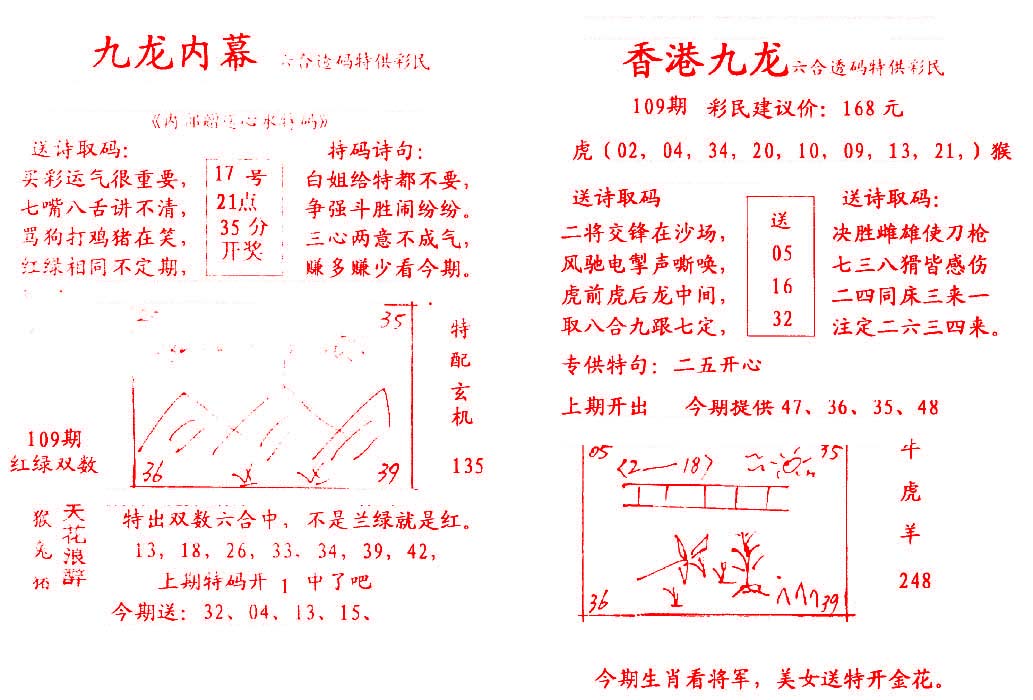 九龙内幕 六合透码特供彩民
《内部赠送心水特码》
送诗取码：
买彩运气很重要，
七嘴八舌讲不清，
骂狗打鸡猪在笑，
红绿相同不定期，
17 号
21点
35 分
开奖
特码诗句：
白姐给特都不要，
争强斗胜闹纷纷。
三心两意不成气，
赚多赚少看今期。
35
36
39
特配玄机
135
109期
红绿双数
猴兔猪
天花浪醉
特出双数六合中，不是兰绿就是红。
13，18，26，33、34，39，42，
上期特码开 1 中了吧
今期送：32、04、13、15、
香港九龙 六合透码特供彩民
109期 彩民建议价：168 元
虎（02，04，34，20，10，09，13，21，）猴
送诗取码
二将交锋在沙场，
风驰电掣声嘶唤，
虎前虎后龙中间，
取八合九跟七定，
送
05
16
32
送诗取码：
决胜雌雄使刀枪
七三八猾皆感伤
二四同床三来一
注定二六三四来。
专供特句：二五开心
上期开出 今期提供 47、36、35、48
05
〈2—18〉
35
36
39
牛
虎
羊
248
今期生肖看将军，美女送特开金花。